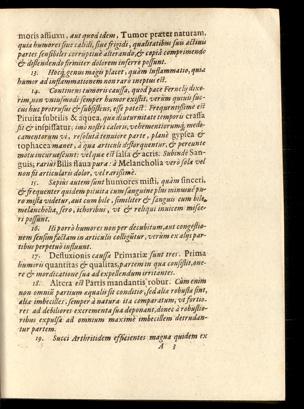 moris affluxu, aut quod idem, Tumor præter naturam,
quia humores sive calidi, sive frigidi, qualitatibus suis actuus
partes sensibiles corruptivè alterando, & cepid comprimendo
& distendendo firmiter dolorem inferre possunt.
13. Hocq́; genus magis placet, quàm Inflammatio, quia
humor ad inflammationem non rarò ineptus est.
14. Continens tumoris caussa, quod pace Fernelij dixe-
rim, non vniusmodi semper humor existit, verùm quivis suc-
cus huc protrusus & subsistens, esse potest: Frequentissimè est
Pituita subtilis & aquea, quæ diuturnitate temporis crassa
fit & inspissatur, imò nostri caloris, vehementiorumq́; medi-
camentorum vi, resolutâ tenuiore parte, planè gypsea &
tophacea manet, à qua articuli distorquentur, & pereunte
motu incurvescunt: velque est salsa & acris: Subinde San-
guis; rarius Bilis flava pura: à Melancholia verò sola vel
non fit articularis dolor, vel rarissimè.
15. Sæpius autem sunt humores misti, quàm sinceri,
& frequenter quidem pituita cum sanguine plus minusve pu-
ro mista videtur, aut cum bile, similiter & sanguis cum bile,
melancholia, sero, ichoribus, vt & reliqui invicem misce-
ri possunt.
16. Hi porrò humores non per decubitum, aut congestio-
nem sensim factam in articulis colliguntur, verùm ex alijs par-
tibus perpetuò influunt.
17. Defluxionis caussæ Primariæ sunt tres. Prima
humoris quantitas & qualitas, partem in qua consistit, one-
re & mordicatione sua ad expellendum irritantes.
18. Altera est Partis mandantis robur. Cùm enim
non omniū partium æqualis sit conditio, sed aliæ robustæ sint,
aliæ imbecilles: semper à natura ita comparatum, vt fortio-
res ad debiliores excrementa sua deponant, donec à robustio-
ribus expulsa ad omnium maximè imbecillem detrudan-
tur partem.
19. Succi Arthritidem efficientes magna quidem ex
A 3